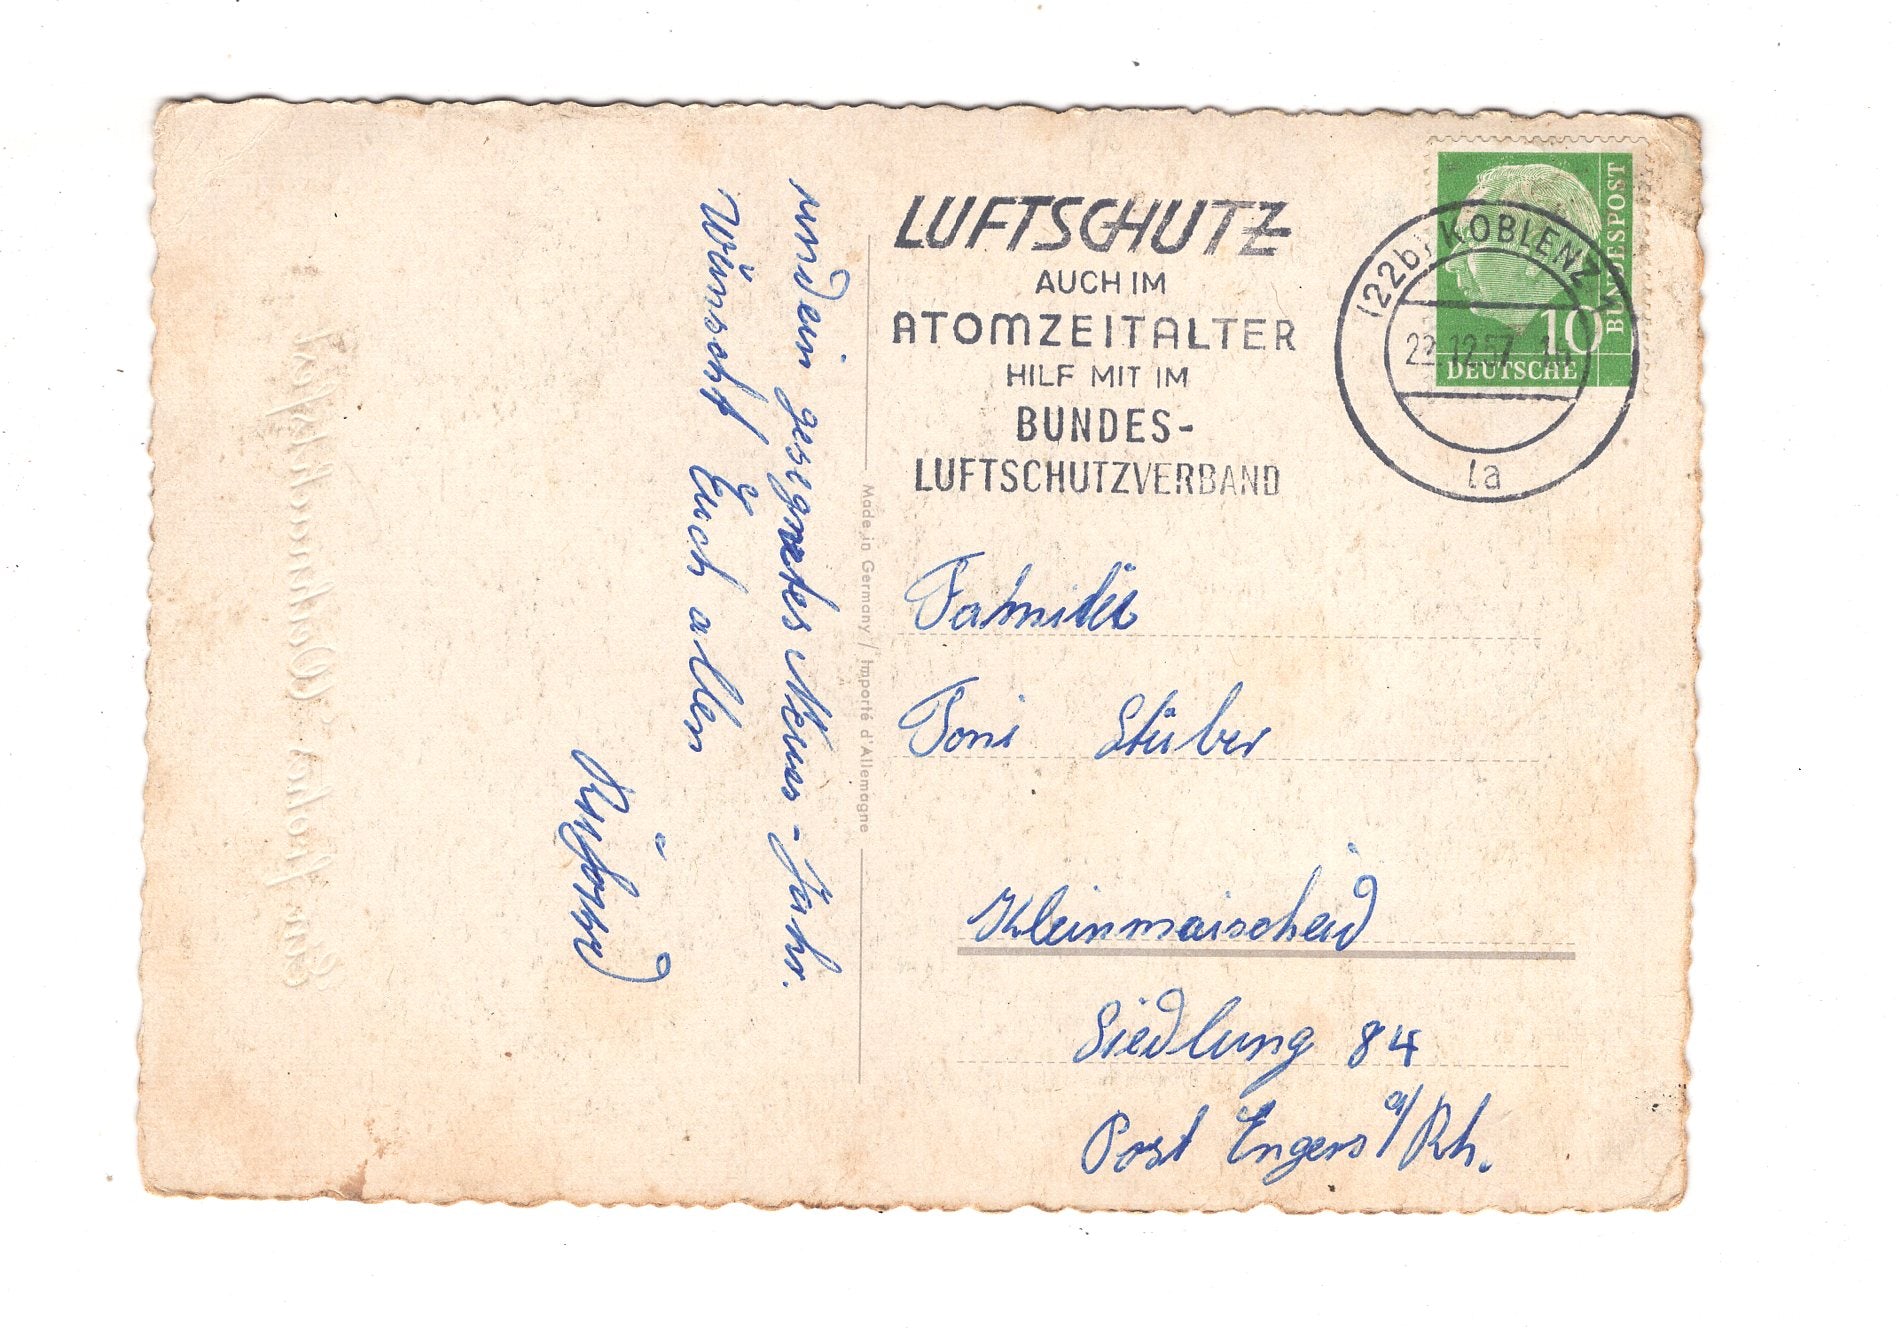 Ein frohes Weihnachtsfest
und ein gesegnetes Neues-Jahr.
Wünscht Euch allen
Made in Germany / Importé d'Allemagne
LUFTSCHUTZ
AUCH IM
ATOMZEITALTER
HILF MIT IM
BUNDES-
LUFTSCHUTZVERBAND
(22b) KOBLENZ 1
22.12.57
la
10
DEUTSCHE
BUNDESPOST
Fahmilie
Toni Stüber
Kleinmaischeid
Siedlung 84
Post Engers a/Rh.